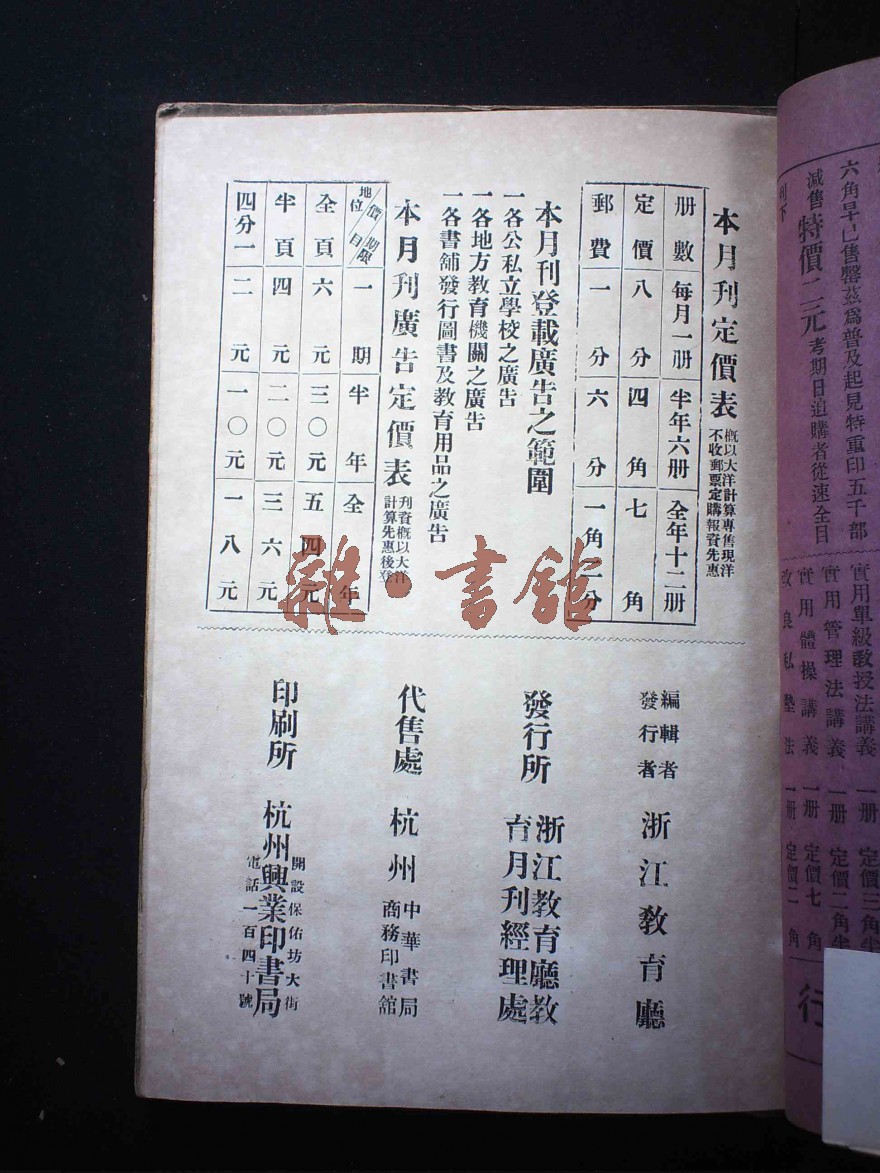 本月刊定價表
概以大洋計算專售現洋
不收郵票定購報資先惠
册數 每月一册 半年六册 全年十二册
定價 八分 四角 七角
郵費 一分 六分 一角二分
本月刊登載廣告之範圍
一各公私立學校之廣告
一各地方教育機關之廣告
一各書舖發行圖書及教育用品之廣告
本月刊廣告定價表
刊資概以大洋
計算先惠後登
地位 價目 期限 一期 半年 全年
全頁 六元 三〇元 五四元
半頁 四元 二〇元 三六元
四分一 二元 一〇元 一八元
編輯者
發行者
浙江教育廳
發行所
浙江教育廳教
育月刊經理處
代售處
杭州
中華書局
商務印書館
印刷所
杭州興業印書局
開設保佑坊大街
電話一百四十號
雜·書館
六角早已售罄茲爲普及起見特重印五千部
減售特價二元考期日迫購者從速全目
列下
實用單級教授法講義 一册 定價三角半
實用管理法講義 一册 定價二角半
實用體操講義 一册 定價七角
改良私塾法 一册 定價二角
行